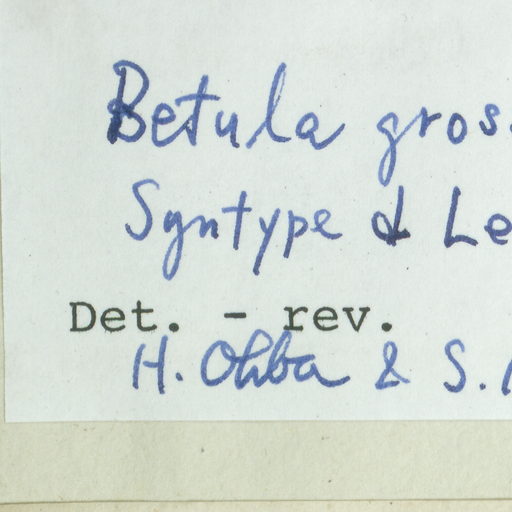 Betula gros
Syntype & Le
Det. - rev.
H. Ohba & S.